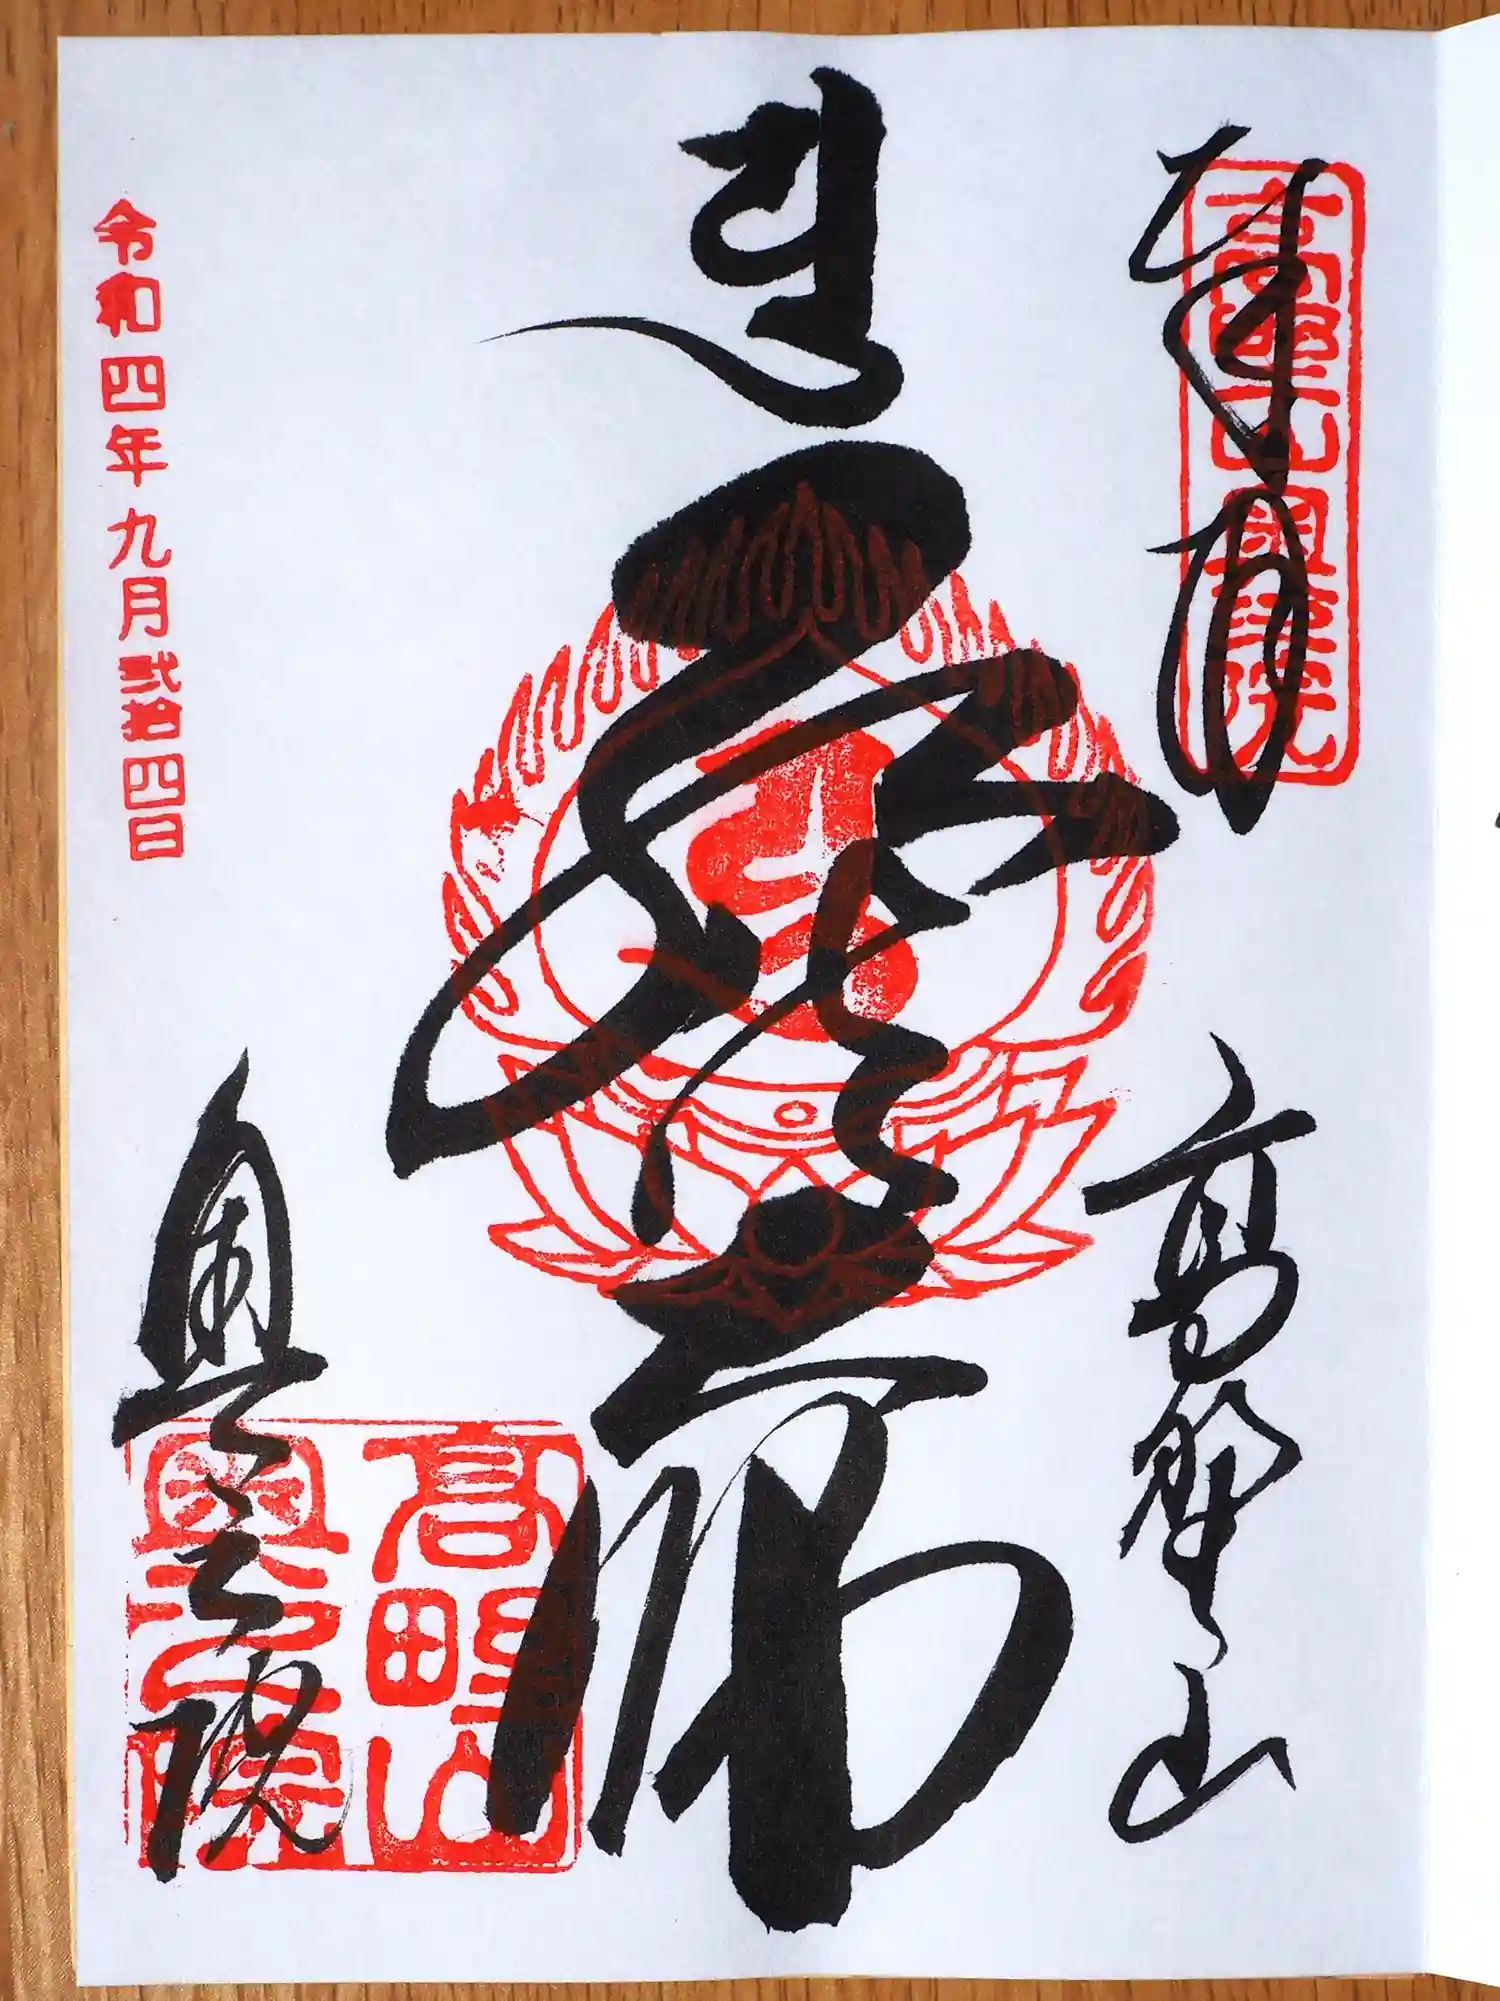 奉拝
高野山奥之院
高野山
弘法大師
奥之院
高野山
奥之院
令和四年九月弐拾四日